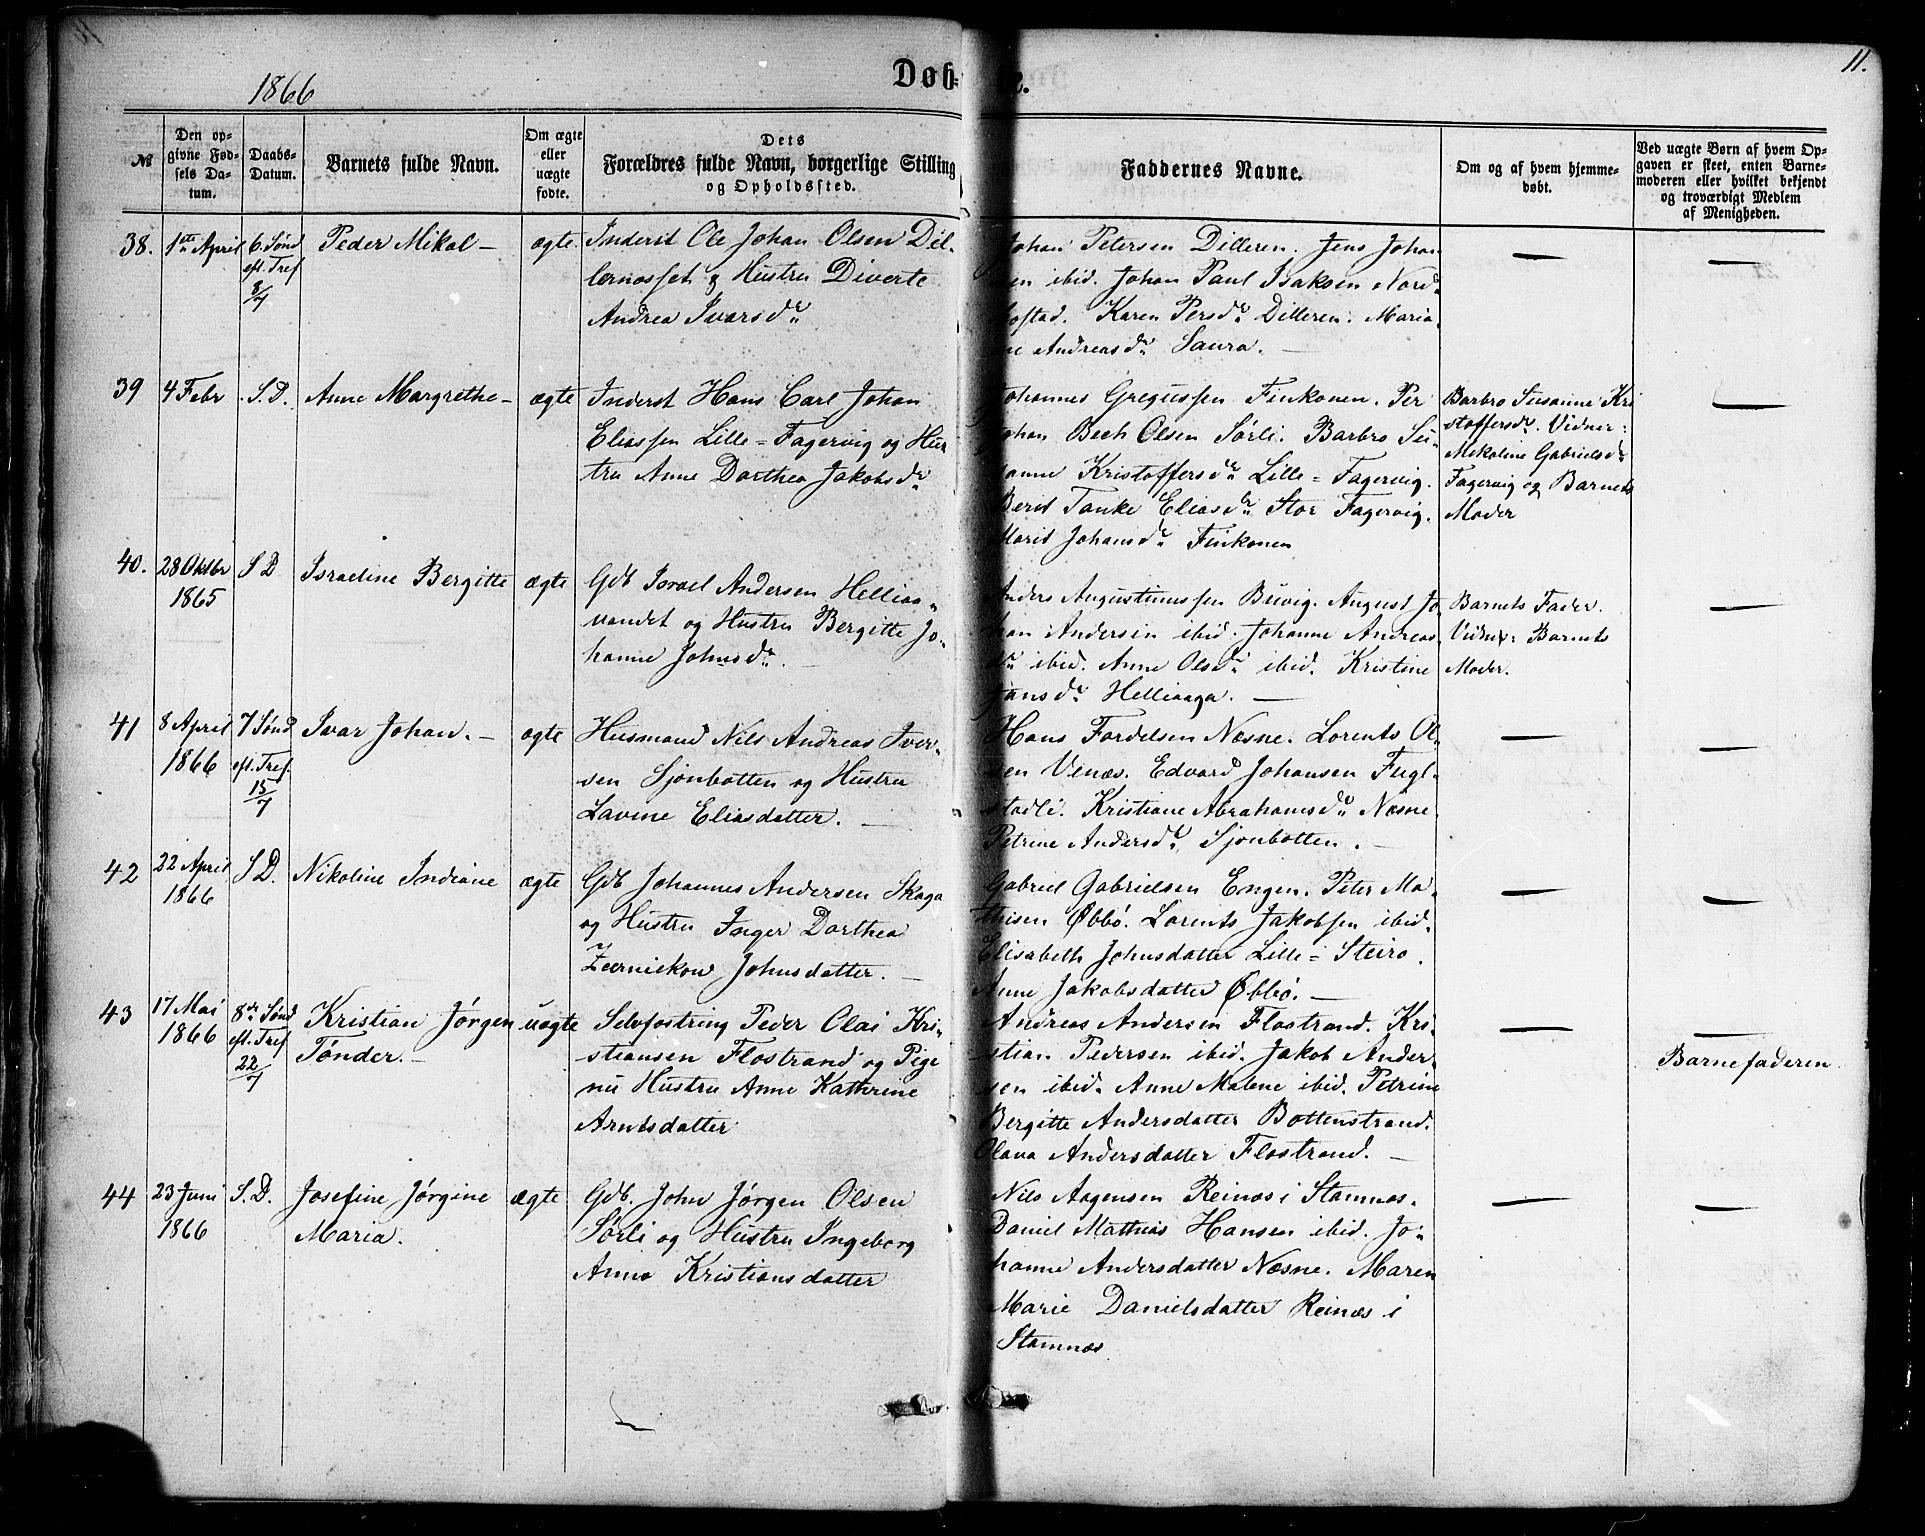 1866
Døb=
e.
11.
№
Den op=
givne Fød=
sels Da=
tum.
Daabs=
Datum.
Barnets fulde Navn.
Om ægte
eller
uægte
fødte.
Dets
Forældres fulde Navn, borgerlige Stilling
og Opholdssted.
Faddernes Navne.
Om og af hvem hjemme=
døbt.
Ved uægte Børn af hvem Op=
gaven er skeet, enten Barne=
moderen eller hvilket bekjendt
og troværdigt Medlem
af Menigheden.
38.
1ste April
6. Sønd
eft. Tref
8/7
Peder Mikal –
ægte
Inderst Ole Johan Olsen Dil=
lernæsset & Hustru Diverte
Andrea Ivarsdr
Johan Petersen Dilleren. Jens Johan
sen ibid. Johan Paul Isaksen Nord=
bostad. Karen Persdr Dilleren. Maria
ne Andreasdr Saura. –
39
4 Febr
S. D.
Anne Margrethe –
ægte
Inderst Hans Carl Johan
Eliassen Lille=Fagervig og Hus
tru Anne Dorthea Jakobsdr
Johannes Gregussen Finkonen. Per
Johan Bech Olsen Sørli. Barbro Su=
sanne Kristoffersdr Lille=Fagervig.
Berit Tanke Eliasdr Stor Fagervig.
Marit Johansdr Finkonen
Barbro Susanne Kri
stoffersdr. Vidner:
Mikoline Gabrielsdr
Fagervig og Barnets
Moder
40.
28 Oktbr
1865
S D
Israeline Bergitte
ægte
Gdb Israel Andersen Helliaa=
vandet og Hustru Bergitte Jo=
hanne Johnsdr. –
Anders Augustinussen Buvig. August Jo
han Andersen ibid. Johanne Andreas
dr ibid. Anne Olsdr ibid. Kristine
Jansdr Helliaaga. –
Barnets Fader.
Vidner: Barnets
Moder.
41
8 April
1866
7 Sønd
eft. Tref.
15/7
Ivar Johan. –
ægte
Husmand Nils Andreas Iver=
sen Sjonbotten og Hustru
Lavine Eliasdatter. –
Hans Fordelsen Næsne. Lorents Ol=
sen Venæs. Edvard Johansen Fugl=
stadli. Kristiane Abrahamsdr Næsne
Petrine Andersdr Sjonbotten. –
42
22 April
1866
S D.
Nikoline Indiane
ægte
Gdb Johannes Andersen Skaga
og Hustru Inger Dorthea
Zernickow Johnsdatter. –
Gabriel Gabrielsen Engen. Peter Ma=
thisen Øbbø. Lorents Jakobsen ibid.
Elisabeth Johnsdatter Lille=Steiro.
Anne Jakobsdatter Øbbø. –
43
17 Mai
1866
8de Sønd
eft. Tref
22/7
Kristian Jørgen
Tønder. –
uægte
Selvfostring Peder Olai Kri=
stiansen Flostrand og Pige
nu Hustru Anne Kathrine
Arntsdatter
Andreas Andersen Flostrand. Kri=
stian Pedersen ibid. Jakob Ander
sen ibid. Anne Malene ibid. Petrine
Bergitte Andersdatter Bottenstrand.
Olava Andersdatter Flostrand. –
Barnefaderen
44
23 Juni
1866
S. D.
Josefine Jørgine
Maria.
ægte
Gdb. John Jørgen Olsen
Sørli og Hustru Ingeborg
Anna Kristiansdatter
Nils Aagensen Reinæs i Stamnæs.
Daniel Mathias Hansen ibid. Jo=
hanne Andersdatter Næsne. Maren
Marie Danielsdatter Reinæs i
Stamnæs